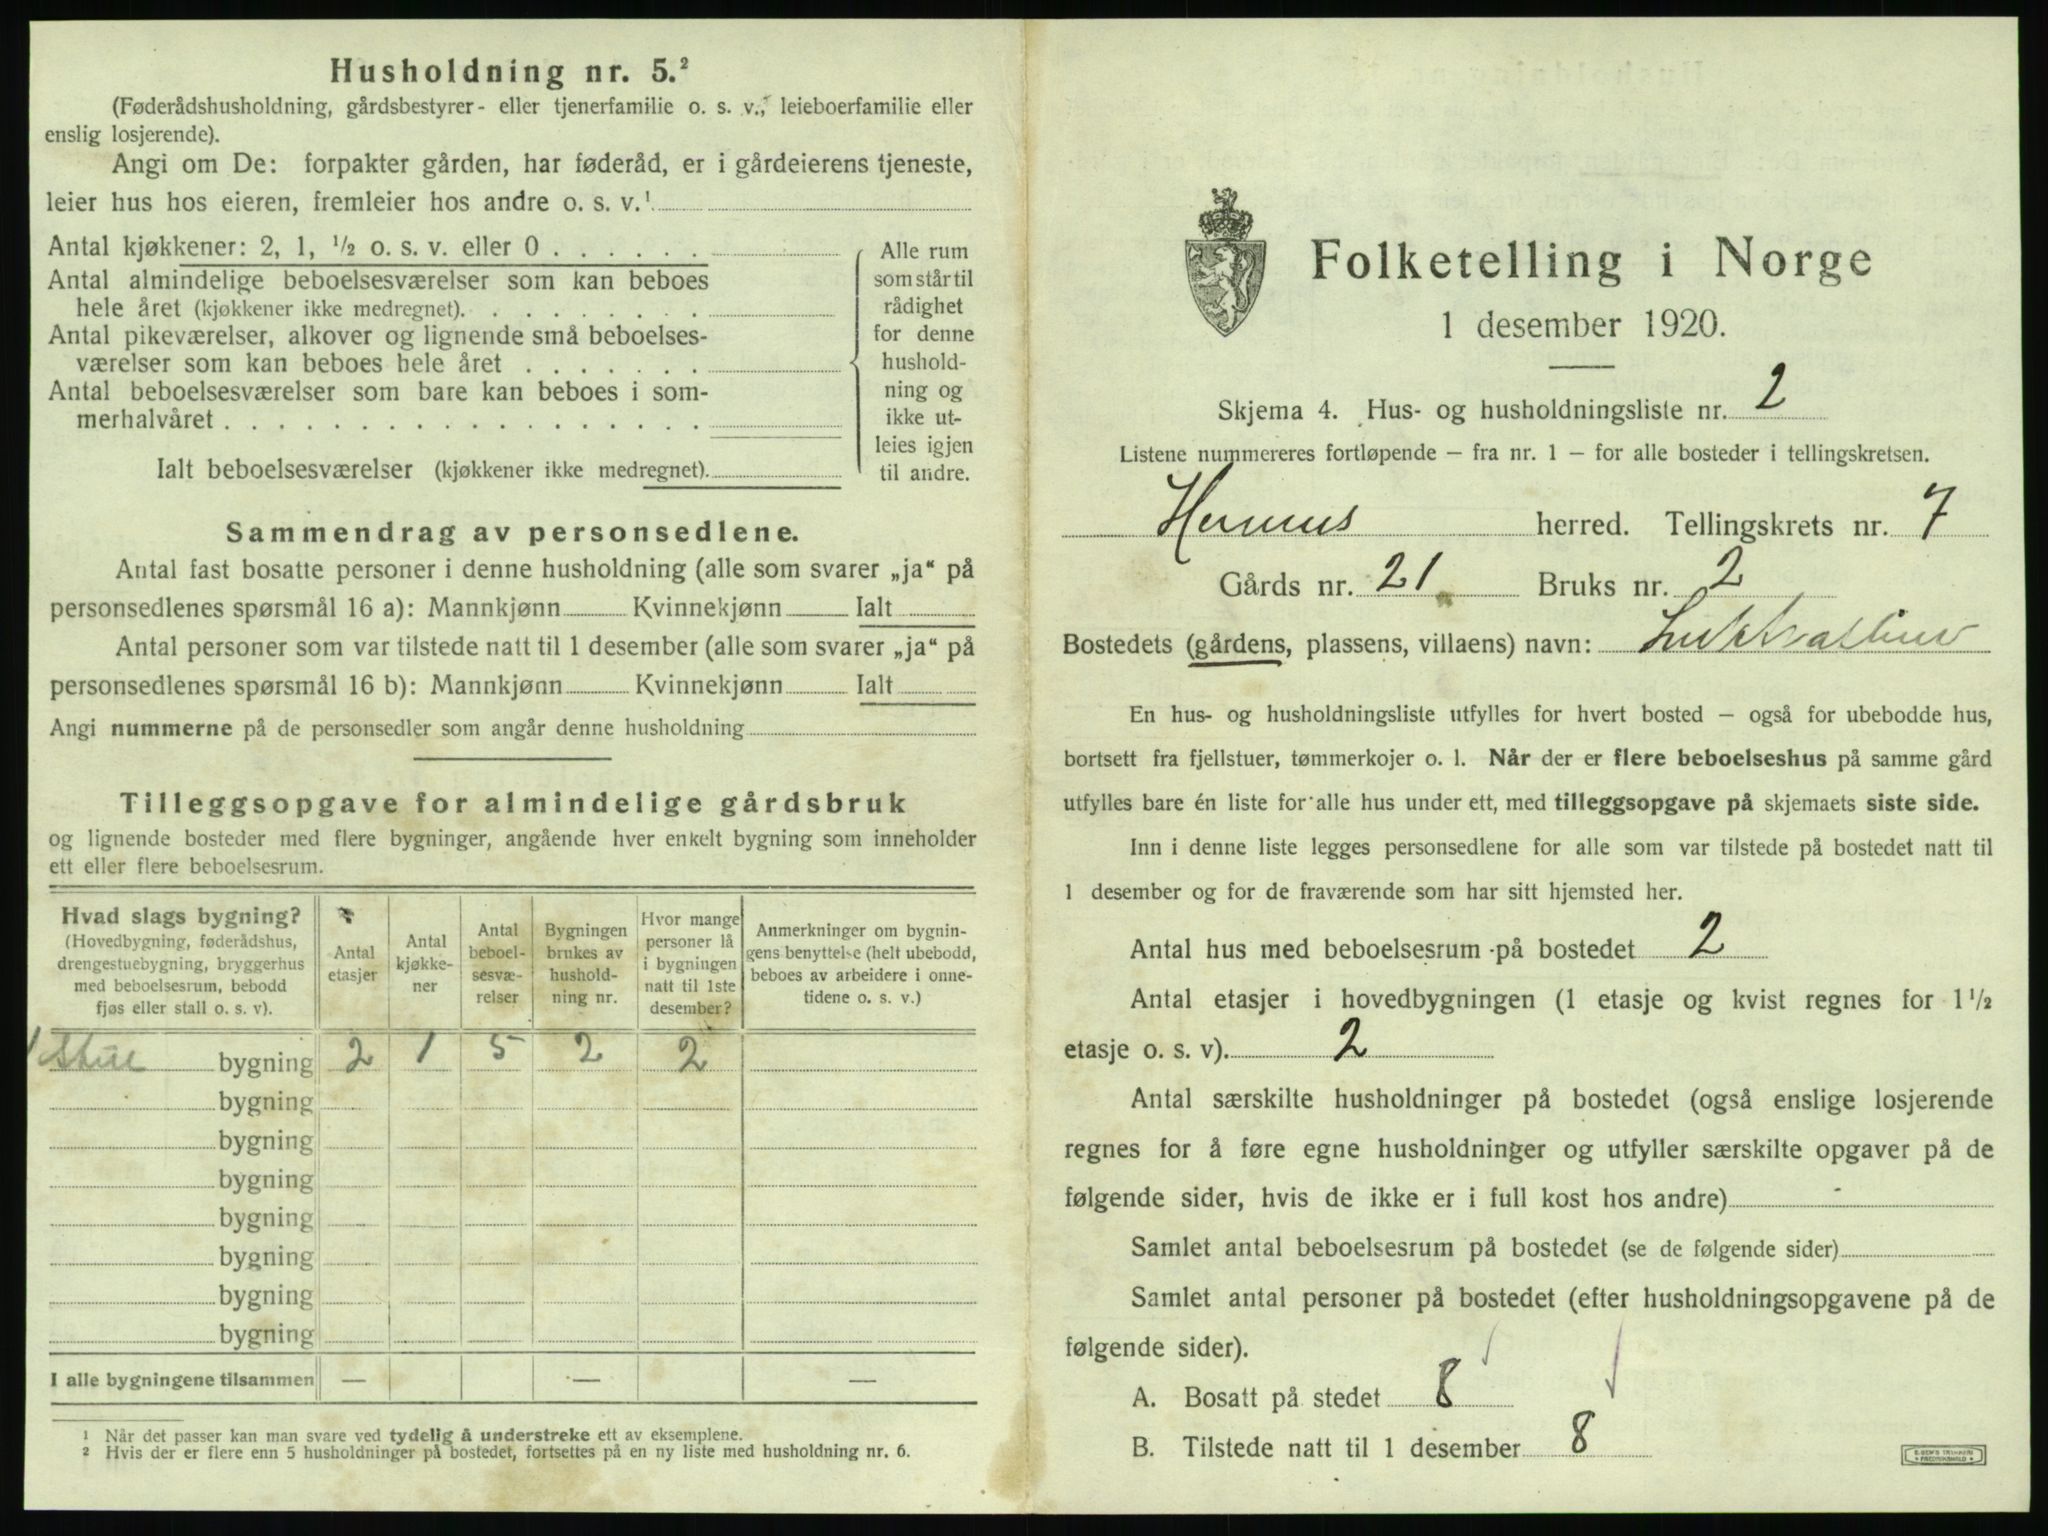 Husholdning nr. 5.²
(Føderådshusholdning, gårdsbestyrer- eller tjenerfamilie o. s. v., leieboerfamilie eller
enslig losjerende).
Angi om De: forpakter gården, har føderåd, er i gårdeierens tjeneste,
leier hus hos eieren, fremleier hos andre o. s. v.¹
Antal kjøkkener: 2, 1, ½ o. s. v. eller 0 . . . . . .
Antal almindelige beboelsesværelser som kan beboes
hele året (kjøkkener ikke medregnet). . . . . . . . .
Antal pikeværelser, alkover og lignende små beboelses-
værelser som kan beboes hele året . . . . . . .
Antal beboelsesværelser som bare kan beboes i som-
merhalvåret . . . . . . . . . . . . . . . . . .
Ialt beboelsesværelser (kjøkkener ikke medregnet).
Alle rum
som står til
rådighet
for denne
hushold-
ning og
ikke ut-
leies igjen
til andre.
Sammendrag av personsedlene.
Antal fast bosatte personer i denne husholdning (alle som svarer „ja“ på
personsedlenes spørsmål 16 a): Mannkjønn Kvinnekjønn Ialt
Antal personer som var tilstede natt til 1 desember (alle som svarer „ja“ på
personsedlenes spørsmål 16 b): Mannkjønn Kvinnekjønn Ialt
Angi nummerne på de personsedler som angår denne husholdning
Tilleggsopgave for almindelige gårdsbruk
og lignende bosteder med flere bygninger, angående hver enkelt bygning som inneholder
ett eller flere beboelsesrum.
Hvad slags bygning?
(Hovedbygning, føderådshus,
drengestuebygning, bryggerhus
med beboelsesrum, bebodd
fjøs eller stall o. s. v).
Antal
etasjer
Antal
kjøkke-
ner
Antal
beboel-
sesvæ-
relser
Bygningen
brukes av
hushold-
ning nr.
Hvor mange
personer lå
i bygningen
natt til 1ste
desember?
Anmerkninger om bygnin-
gens benyttelse (helt ubebodd,
beboes av arbeidere i onne-
tidene o. s. v.)
bygning 2 1 5 2 2
bygning
bygning
bygning
bygning
bygning
bygning
bygning
I alle bygningene tilsammen — — —
¹ Når det passer kan man svare ved tydelig å understreke ett av eksemplene.
² Hvis der er flere enn 5 husholdninger på bostedet, fortsettes på en ny liste med husholdning nr. 6.
Folketelling i Norge
1 desember 1920.
Skjema 4. Hus- og husholdningsliste nr. 2
Listene nummereres fortløpende — fra nr. 1 — for alle bosteder i tellingskretsen.
herred. Tellingskrets nr. 7
Gårds nr. 21 Bruks nr. 2
Bostedets (gårdens, plassens, villaens) navn:
En hus- og husholdningsliste utfylles for hvert bosted — også for ubebodde hus,
bortsett fra fjellstuer, tømmerkojer o. l. Når der er flere beboelseshus på samme gård
utfylles bare én liste for alle hus under ett, med tilleggsopgave på skjemaets siste side.
Inn i denne liste legges personsedlene for alle som var tilstede på bostedet natt til
1 desember og for de fraværende som har sitt hjemsted her.
Antal hus med beboelsesrum på bostedet 2
Antal etasjer i hovedbygningen (1 etasje og kvist regnes for 1½
etasje o. s. v). 2
Antal særskilte husholdninger på bostedet (også enslige losjerende
regnes for å føre egne husholdninger og utfyller særskilte opgaver på de
følgende sider, hvis de ikke er i full kost hos andre)
Samlet antal beboelsesrum på bostedet (se de følgende sider)
Samlet antal personer på bostedet (efter husholdningsopgavene på de
følgende sider).
A. Bosatt på stedet 8
B. Tilstede natt til 1 desember 8